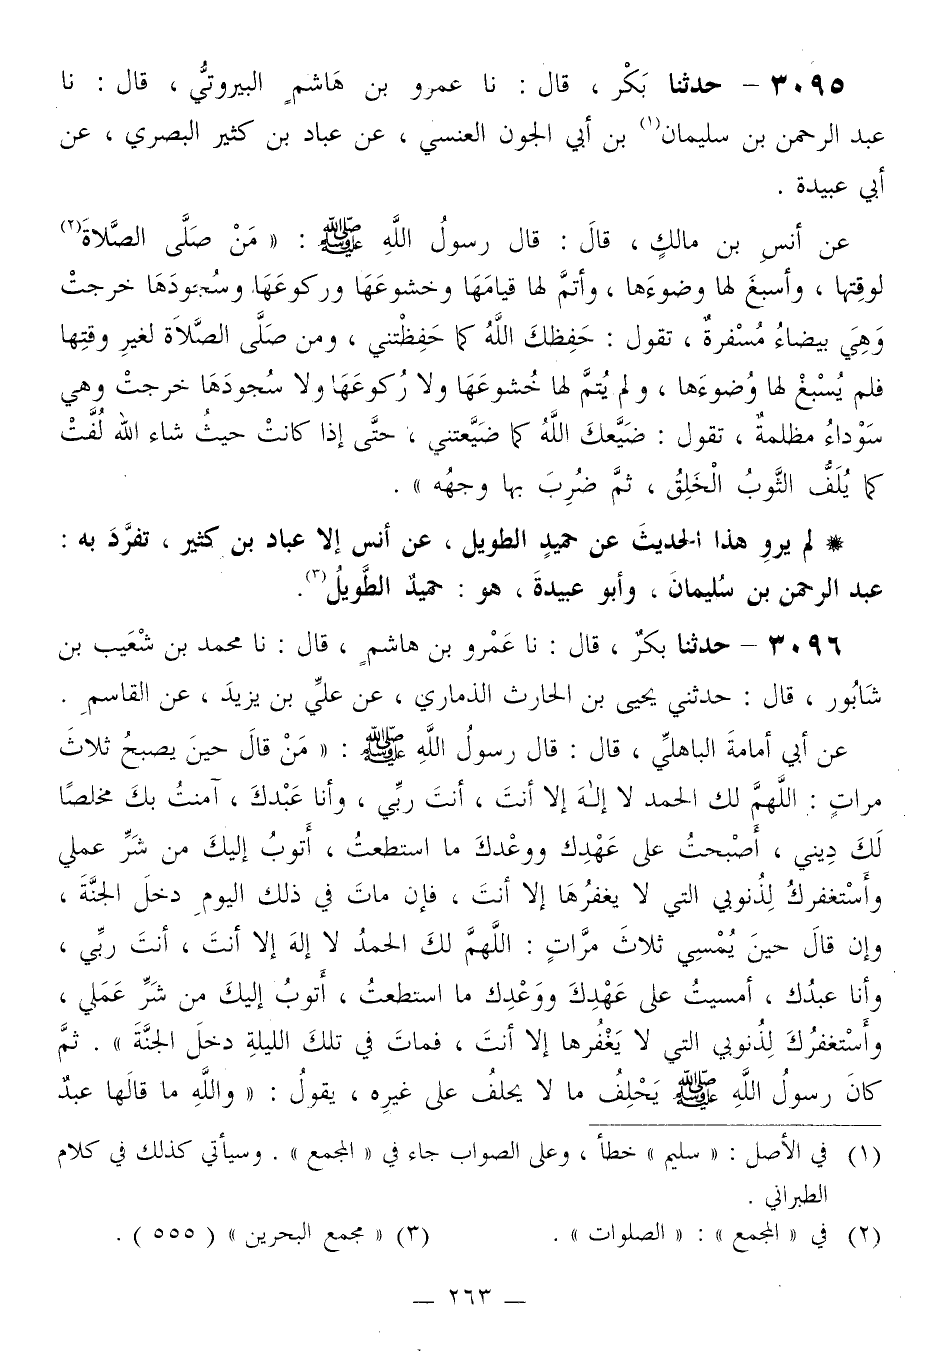 ٣٠٩٥ – حدثنا بَكْر ، قال : نا عمرو بن هَاشمٍ البيروتيُّ ، قال : نا
عبد الرحمن بن سليمان(١) بن أبي الجون العنسي ، عن عباد بن كثير البصري ، عن
أبي عبيدة .
عن أنسِ بن مالكٍ ، قالَ : قال رسولُ اللَّهِ ﷺ : « مَنْ صَلَّى الصَّلاةَ(٢)
لوقتِها ، وأسبغَ لها وضوءَها ، وأتمَّ لها قيامَهَا وخشوعَهَا وركوعَهَا وسُجودَهَا خرجتْ
وَهِيَ بيضاءُ مُسْفرةٌ ، تقول : حَفِظكَ اللَّهُ كما حَفِظْتني ، ومن صلَّى الصَّلاَة لغيرِ وقتِها
فلم يُسْبِغْ لها وُضوءَها ، ولم يُتمَّ لها خُشوعَهَا ولا رُكوعَهَا ولا سُجودَهَا خرجتْ وهي
سَوْداءُ مظلمةٌ ، تقول : ضَيَّعكَ اللَّهُ كما ضَيَّعتني ، حتَّى إذا كانتْ حيثُ شاء الله لُفَّتْ
كما يُلَفُّ الثَّوبُ الْخَلِقُ ، ثمَّ ضُرِبَ بها وجهُه » .
* لم يروِ هذا الحديثَ عن حميدٍ الطويل ، عن أنس إلا عباد بن كثير ، تفرَّدَ به :
عبد الرحمن بن سُليمانَ ، وأبو عبيدةَ ، هو : حميدٌ الطَّويلُ(٣).
٣٠٩٦ – حدثنا بكرٌ ، قال : نا عَمْرو بن هاشمٍ ، قال : نا محمد بن شُعَيب بن
شَابُور ، قال : حدثني يحيى بن الحارث الذماري ، عن عليِّ بن يزيدَ ، عن القاسمِ .
عن أبي أمامةَ الباهليِّ ، قال : قال رسولُ اللَّهِ ﷺ : « مَنْ قالَ حينَ يصبحُ ثلاثَ
مراتٍ : اللَّهمَّ لك الحمد لا إلـٰهَ إلا أنتَ ، أنتَ ربِّي ، وأنا عَبْدكَ ، آمنتُ بكَ مخلصًا
لَكَ دِيني ، أَصْبحتُ على عَهْدِك ووعْدكَ ما استطعتُ ، أَتوبُ إليكَ من شَرِّ عملي
وأَسْتغفركُ لِذُنوبي التي لا يغفرُهَا إلا أنتَ ، فإن ماتَ في ذلك اليومِ دخلَ الجنَّةَ ،
وإن قالَ حينَ يُمْسِي ثلاثَ مرَّاتٍ : اللَّهمَّ لكَ الحمدُ لا إلهَ إلا أنتَ ، أنتَ ربِّي ،
وأنا عبدُك ، أمسيتُ على عَهْدِكَ ووَعْدِك ما استطعتُ ، أَتوبُ إليكَ من شَرِّ عَمَلي ،
وأَسْتغفرُكَ لِذُنوبي التي لا يَغْفُرها إلا أنتَ ، فماتَ في تلكَ الليلةِ دخلَ الجنَّةَ » . ثمَّ
كانَ رسولُ اللَّهِ ﷺ يَحْلِفُ ما لا يحلفُ على غيرِه ، يقولُ : « واللَّهِ ما قالَها عبدٌ
(١) في الأصل : « سليم » خطأ ، وعلى الصواب جاء في « المجمع » . وسيأتي كذلك في كلام
الطبراني .
(٢) في « المجمع » : « الصلوات » . (٣) « مجمع البحرين » ( ٥٥٥ ) .
– ٢٦٣ –